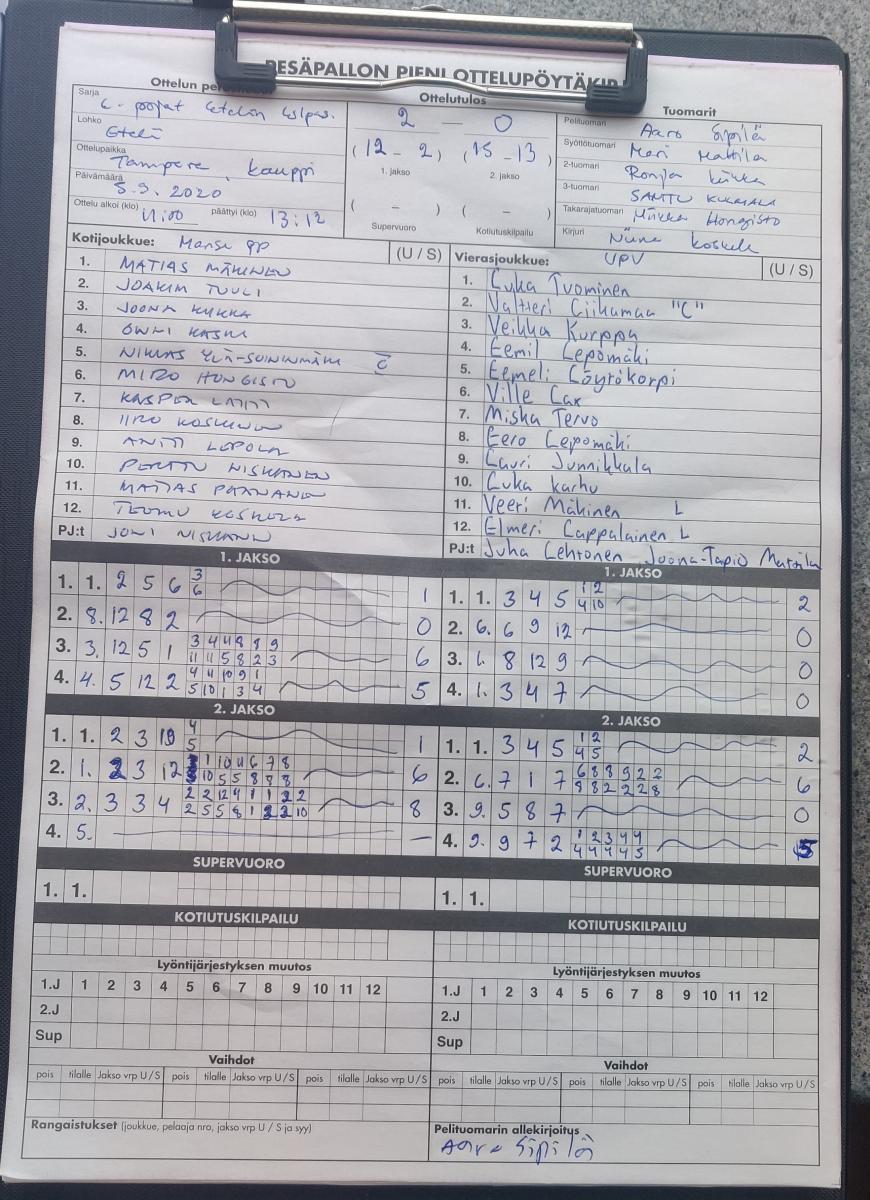 PESÄPALLON PIENI OTTELUPÖYTÄKIR
Ottelun per
Sarja
C-pojat
Lohko
Etelä
Ottelupaikka
Tampere, Kauppi
Päivämäärä
5.9.2020
Ottelu alkoi (klo) 11:00 päättyi (klo) 13:12
Ottelutulos
2 — 0
(12 - 2) (15 - 13)
1. jakso 2. jakso
( - ) ( - )
Supervuoro Kotiutuskilpailu
Tuomarit
Pelituomari Aaro Sipilä
Syöttötuomari Meri Mattila
2-tuomari Ronja
3-tuomari SANTU KULMALA
Takarajatuomari Miikka Hongisto
Kirjuri Niina Koskela
Kotijoukkue: Manse PP (U / S)
1. MATIAS MÄKINEN
2. JOAKIM TUULI
3. JOONA KUKKA
4. ONNI KASKI
5. NIKLAS YLÄ-SOININMÄKI C
6. MIRO HONGISTO
7. KASPER LAHTI
8. IIRO KOSKINEN
9. ANTTI LEPOLA
10. PERTTU NISKANEN
11. MATIAS PAANANEN
12. TEEMU KOSKELA
PJ:t JONI NISKANEN
Vierasjoukkue: UPV (U / S)
1. Luka Tuominen
2. Valtteri Liikamaa "C"
3. Veikka Kurppa
4. Eemil Lepomäki
5. Eemeli Löytökorpi
6. Ville Lax
7. Miska Tervo
8. Eero Lepomäki
9. Lauri Junnikkala
10. Luka Karhu
11. Veeri Mäkinen L
12. Elmeri Lappalainen L
PJ:t Juha Lehtonen Joona-Tapio Mattila
1. JAKSO
1. 1. 2 5 6 3 1
6
2. 8. 12 8 2 0
3. 3. 12 5 1 3 4 4 8 8 9 6
11 11 5 8 2 3
4. 4. 5 12 2 4 11 10 9 1 5
5 10 1 3 4
1. JAKSO
1. 1. 3 4 5 1 2 2
4 10
2. 6. 6 9 12 0
3. 1. 8 12 9 0
4. 1. 3 4 7 0
2. JAKSO
1. 1. 2 3 10 4 1
5
2. 1. 2 3 12 1 10 4 6 7 8 6
10 5 5 8 8 8
3. 2. 3 3 4 2 2 12 4 1 1 2 2 8
2 5 5 8 1 2 2 10
4. 5. —
2. JAKSO
1. 1. 3 4 5 1 2 2
4 5
2. 6. 7 1 7 6 8 8 9 2 2 6
8 8 2 2 2 8
3. 9. 5 8 7 0
4. 9. 9 7 2 1 2 3 4 4 5
4 4 4 4 5
SUPERVUORO
1. 1.
SUPERVUORO
1. 1.
KOTIUTUSKILPAILU
KOTIUTUSKILPAILU
Lyöntijärjestyksen muutos
1.J 1 2 3 4 5 6 7 8 9 10 11 12
2.J
Sup
Lyöntijärjestyksen muutos
1.J 1 2 3 4 5 6 7 8 9 10 11 12
2.J
Sup
Vaihdot
pois tilalle Jakso vrp U / S pois tilalle Jakso vrp U / S pois tilalle Jakso vrp U / S
Vaihdot
pois tilalle Jakso vrp U / S pois tilalle Jakso vrp U / S pois tilalle Jakso vrp U / S
Rangaistukset (joukkue, pelaaja nro, jakso vrp U / S ja syy)
Pelituomarin allekirjoitus
Aaro Sipilä